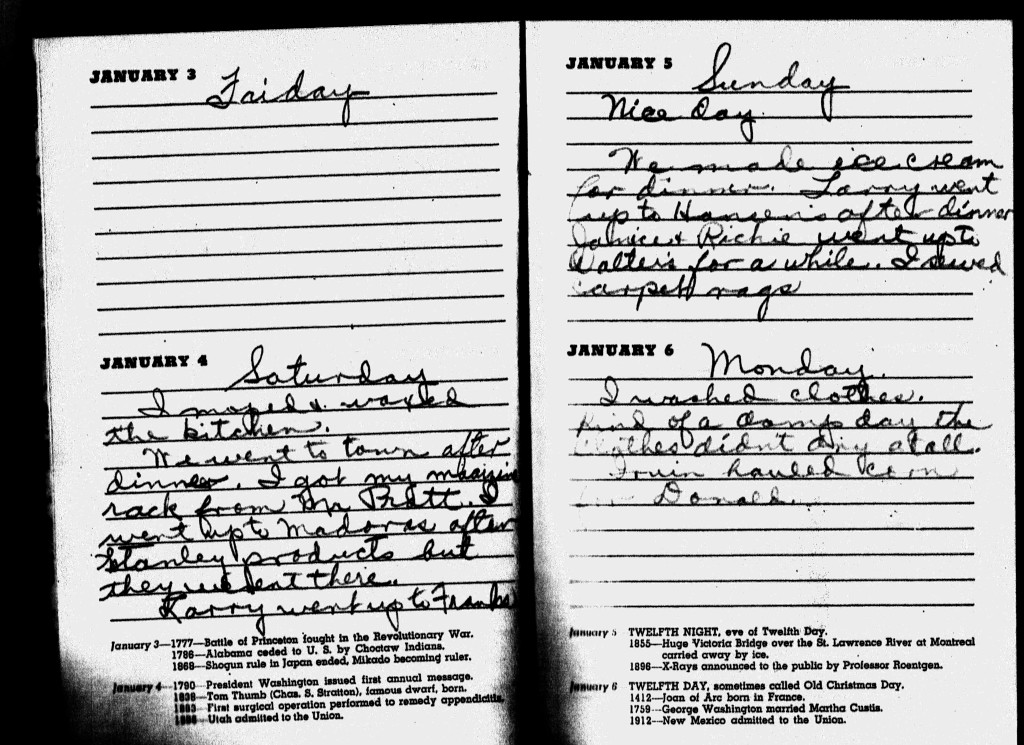 JANUARY 3
Friday
JANUARY 4
Saturday
I moped & waxed
the kitchen.
We went to town after
dinner. I got my magazine
rack from Mr Pratt. I
went up to Madoras after
Stanley products but
they weren't there.
Larry went up to Franks
January 3—1777—Battle of Princeton fought in the Revolutionary War.
1786—Alabama ceded to U. S. by Choctaw Indians.
1868—Shogun rule in Japan ended, Mikado becoming ruler.
January 4—1790—President Washington issued first annual message.
1838—Tom Thumb (Chas. S. Stratton), famous dwarf, born.
First surgical operation performed to remedy appendicitis.
1896—Utah admitted to the Union.
JANUARY 5
Sunday
Nice Day.
We made ice cream
for dinner. Larry went
up to Hansen's after dinner
Janice & Richie went up to
Walter's for a while. I sewed
carpet rags
JANUARY 6
Monday.
I washed clothes.
Kind of a damp day the
clothes didn't dry at all.
Irvin hauled corn
for Donald.
January 5 TWELFTH NIGHT, eve of Twelfth Day.
1855—Huge Victoria Bridge over the St. Lawrence River at Montreal
carried away by ice.
1896—X-Rays announced to the public by Professor Roentgen.
January 6 TWELFTH DAY, sometimes called Old Christmas Day.
1412—Joan of Arc born in France.
1759—George Washington married Martha Custis.
1912—New Mexico admitted to the Union.